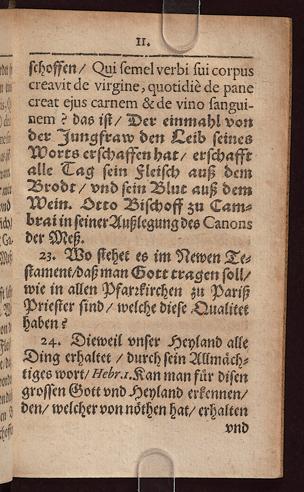 II.
schoffen/ Qui semel verbi sui corpus
creavit de virgine, quotidiè de pane
creat ejus carnem & de vino sangui-
nem? das ist/ Der einmahl von
der Jungfraw den Leib seines
Worts erschaffen hat/ erschafft
alle Tag sein Fleisch auß dem
Brodt/ vnd sein Blut auß dem
Wein. Otto Bischoff zu Cam-
brai in seiner Außlegung des Canons
der Meß.
23. Wo stehet es im Newen Te-
stament/ daß man Gott tragen soll/
wie in allen Pfarrkirchen zu Pariß
Priester sind/ welche diese Qualitet
haben?
24. Dieweil vnser Heyland alle
Ding erhaltet/ durch sein Allmäch-
tiges wort/ Hebr. 1. Kan man für disen
grossen Gott vnd Heyland erkennen/
den/ welcher von nöthen hat/ erhalten
vnd